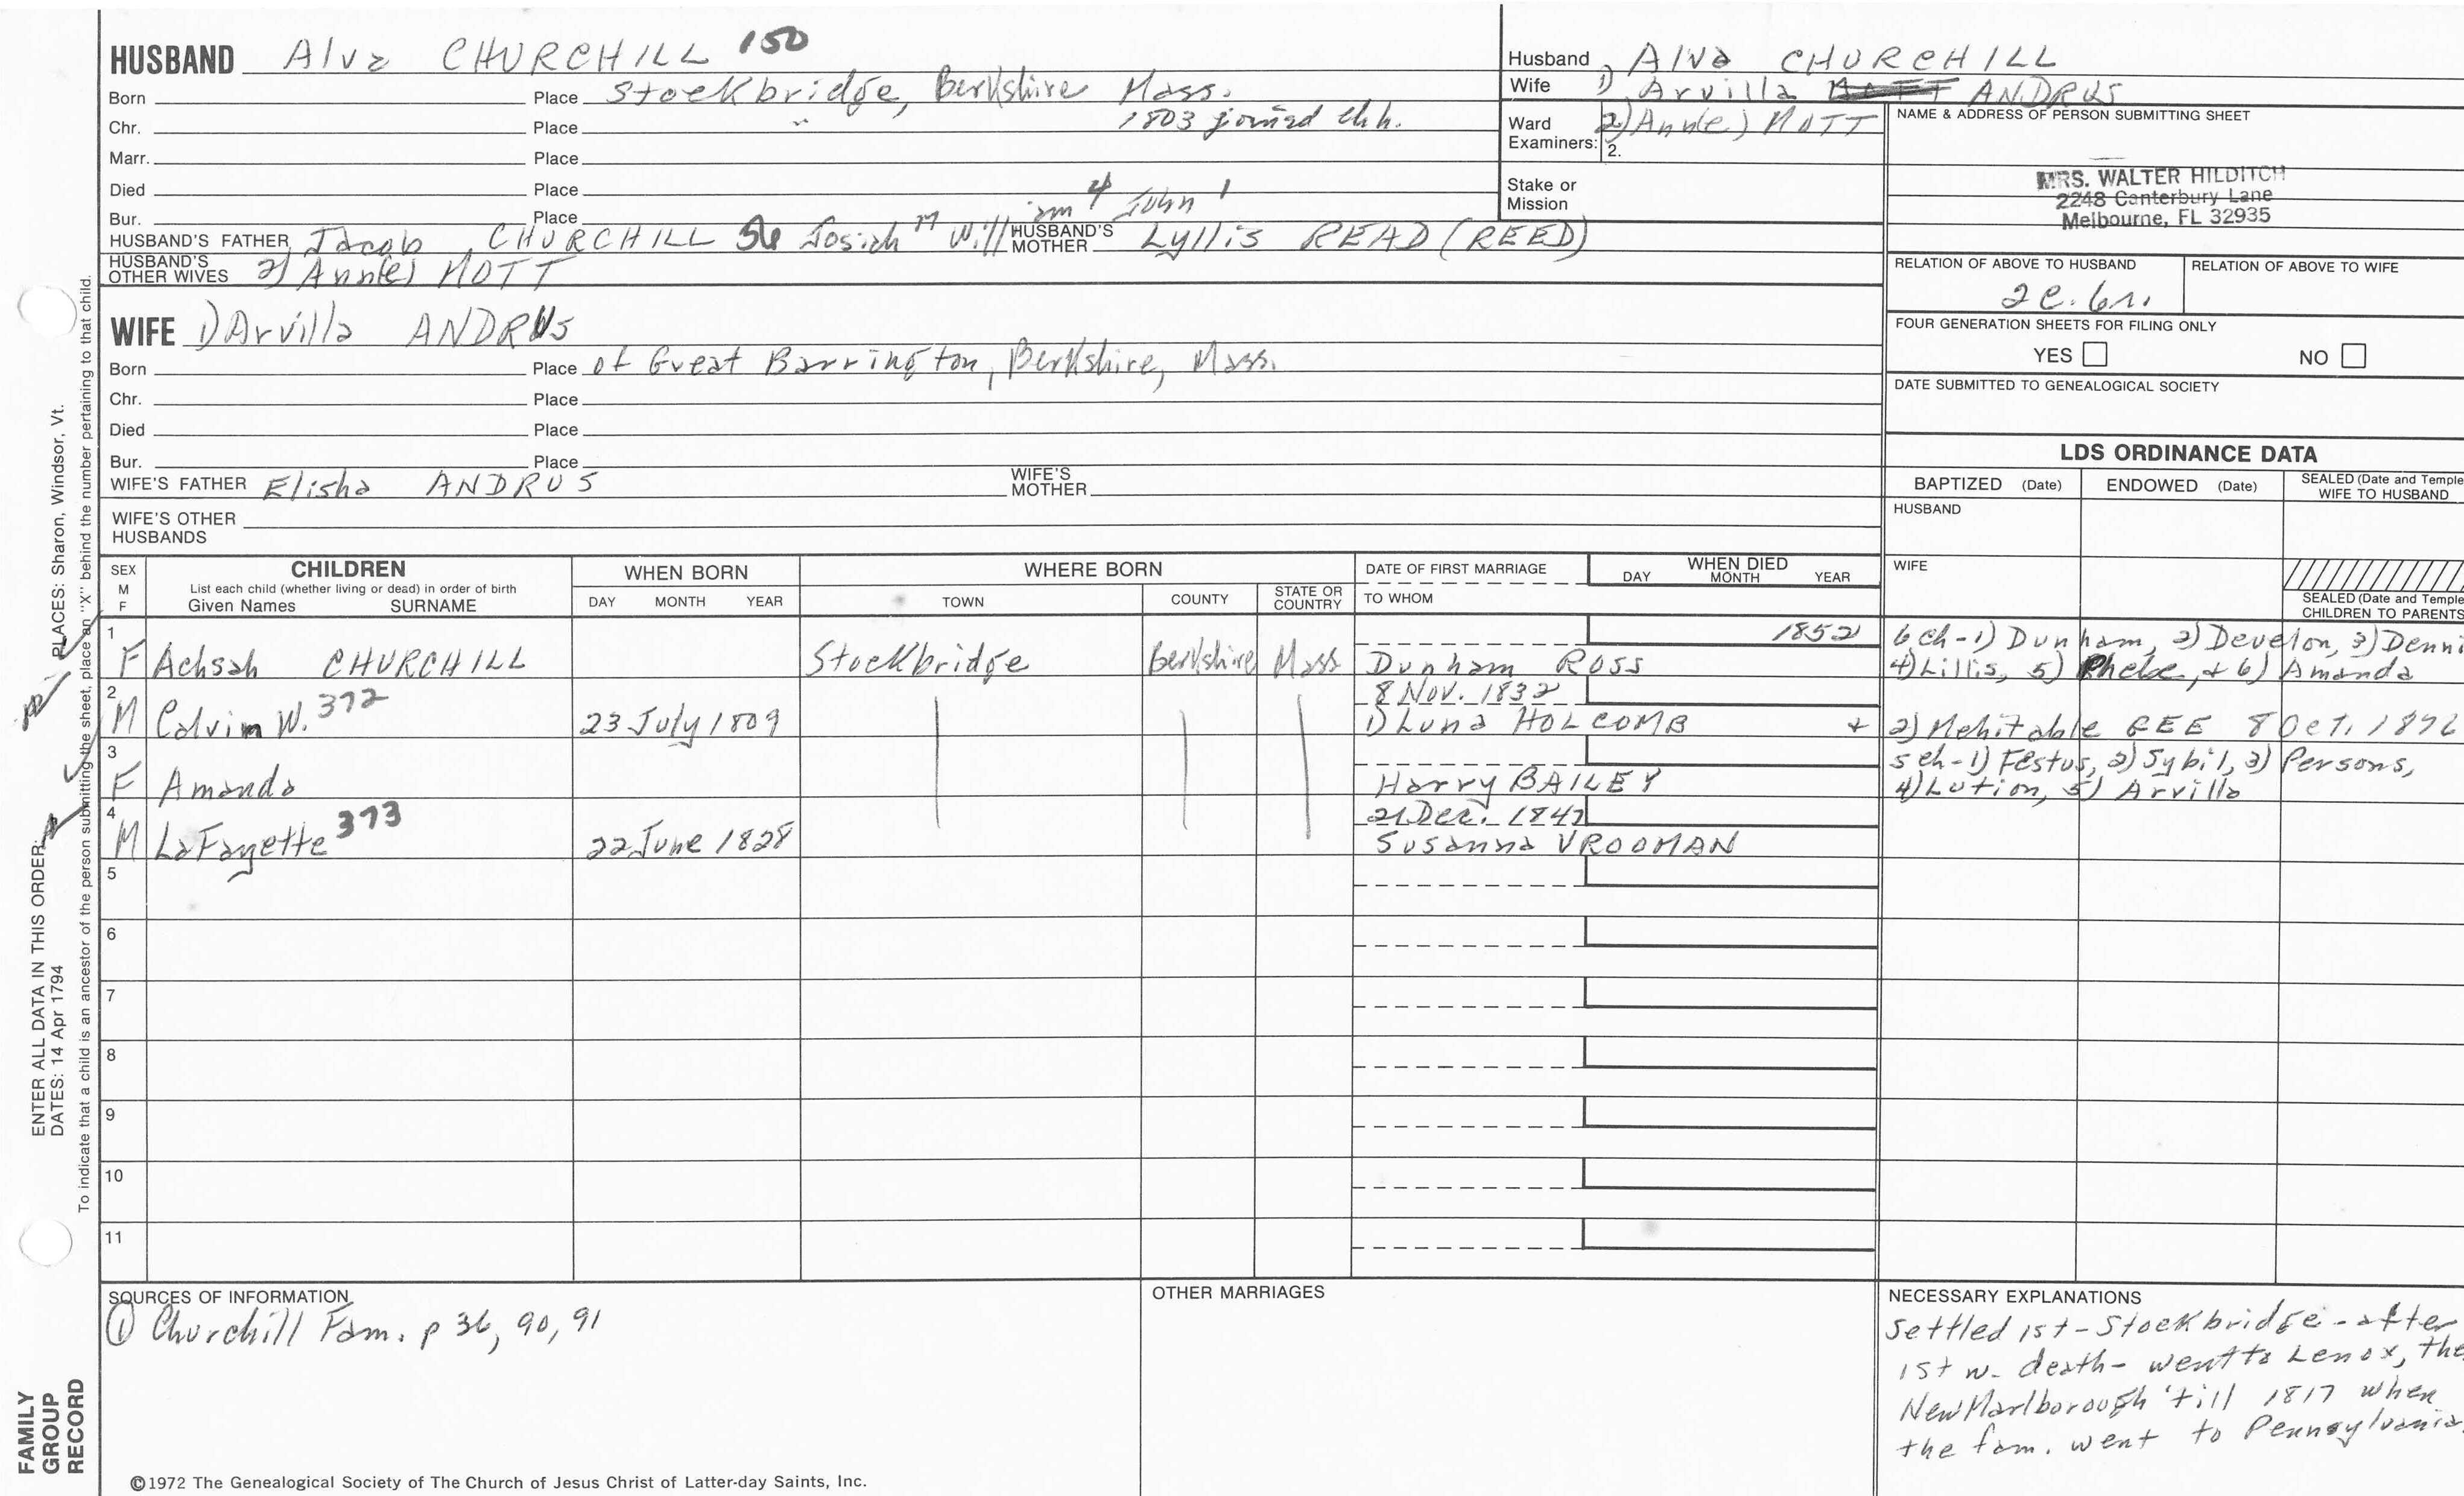 HUSBAND Alva CHURCHILL 150
Born Place Stockbridge, Berkshire Mass.
Chr. Place " 1803 joined chh.
Marr. Place
Died Place
Bur. Place
HUSBAND'S FATHER Jacob CHURCHILL Josiah William 4 John 1 HUSBAND'S MOTHER Lyllis READ (REED)
HUSBAND'S OTHER WIVES 2) Ann(e) MOTT
WIFE 1) Arvilla ANDRUS
Born Place of Great Barrington, Berkshire, Mass.
Chr. Place
Died Place
Bur. Place
WIFE'S FATHER Elisha ANDRUS WIFE'S MOTHER
WIFE'S OTHER HUSBANDS
Husband Alva CHURCHILL
Wife 1) Arvilla ANDRUS
Ward 2) Ann(e) MOTT
Examiners: 2.
Stake or Mission
NAME & ADDRESS OF PERSON SUBMITTING SHEET
MRS. WALTER HILDITCH
2248 Canterbury Lane
Melbourne, FL 32935
RELATION OF ABOVE TO HUSBAND RELATION OF ABOVE TO WIFE
2c. 6r.
FOUR GENERATION SHEETS FOR FILING ONLY
YES NO
DATE SUBMITTED TO GENEALOGICAL SOCIETY
LDS ORDINANCE DATA
BAPTIZED (Date) ENDOWED (Date) SEALED (Date and Temple WIFE TO HUSBAND
HUSBAND
WIFE
SEALED (Date and Temple
CHILDREN TO PARENTS
SEX M F CHILDREN WHEN BORN WHERE BORN DATE OF FIRST MARRIAGE WHEN DIED
List each child (whether living or dead) in order of birth
Given Names SURNAME DAY MONTH YEAR TOWN COUNTY STATE OR COUNTRY TO WHOM DAY MONTH YEAR
1 1852 6 ch - 1) Dunham, 2) Develon, 3) Denni
F Achsah CHURCHILL Stockbridge Berkshire Mass Dunham ROSS 4) Lillis, 5) Phebe, & 6) Amanda
2 8 Nov. 1832
M Calvin W. 372 23 July 1809 1) Luna HOLCOMB + 2) Mehitable GEE 8 Oct. 1876
3 5 ch - 1) Festus, 2) Sybil, 3) Persons,
F Amanda Harry BAILEY 4) Lution, 5) Arvilla
4 21 Dec. 1847
M LaFayette 373 22 June 1828 Susanna VROOMAN
5
6
7
8
9
10
11
SOURCES OF INFORMATION
① Churchill Fam. p 36, 90, 91
OTHER MARRIAGES
NECESSARY EXPLANATIONS
Settled 1st - Stockbridge - after
1st w. death - went to Lenox, the
New Marlborough 'till 1817 when
the fam. went to Pennsylvania.
©1972 The Genealogical Society of The Church of Jesus Christ of Latter-day Saints, Inc.
FAMILY GROUP RECORD
ENTER ALL DATA IN THIS ORDER: PLACES: Sharon, Windsor, Vt.
DATES: 14 Apr 1794
To indicate that a child is an ancestor of the person submitting the sheet, place an "X" behind the number pertaining to that child.